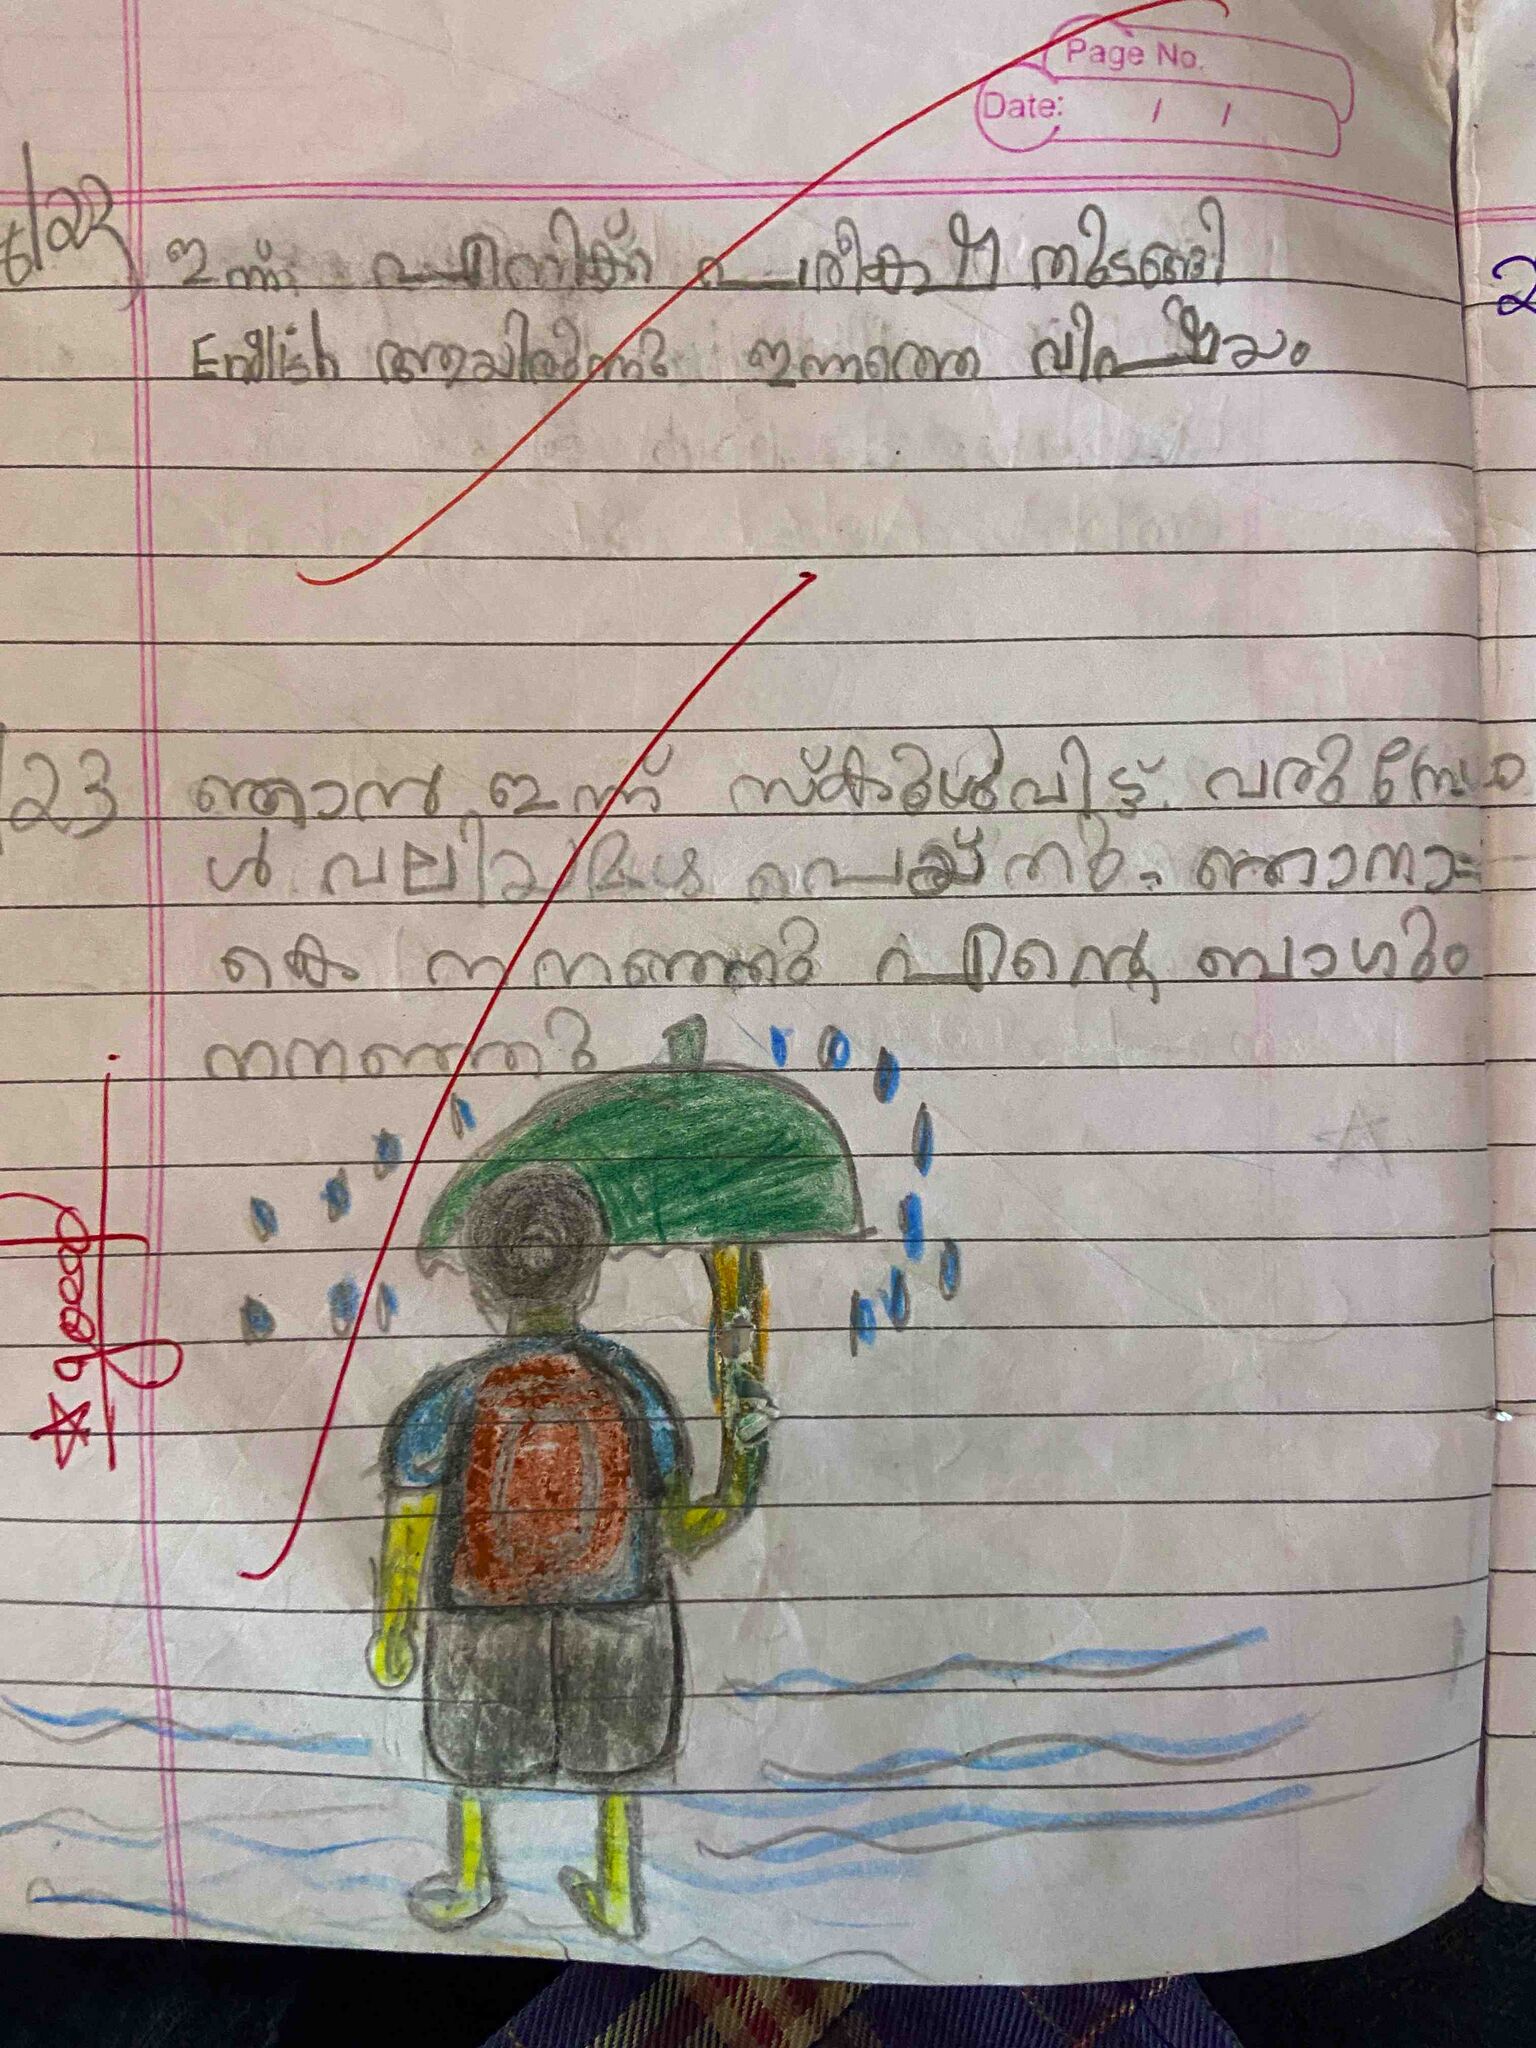 Page No.
Date: / /
ഇന്ന് എനിക്ക് പരീക്ഷ തുടങ്ങി
English ആയിരുന്നു ഇന്നത്തെ വിഷയം
23 ഞാൻ ഇന്ന് സ്കൂൾവിട്ട് വരുമ്പോ
ൾ വലിയമഴ പെയ്തു. ഞാനാ
കെ നനഞ്ഞു എന്റെ ബാഗും
നനഞ്ഞു
good